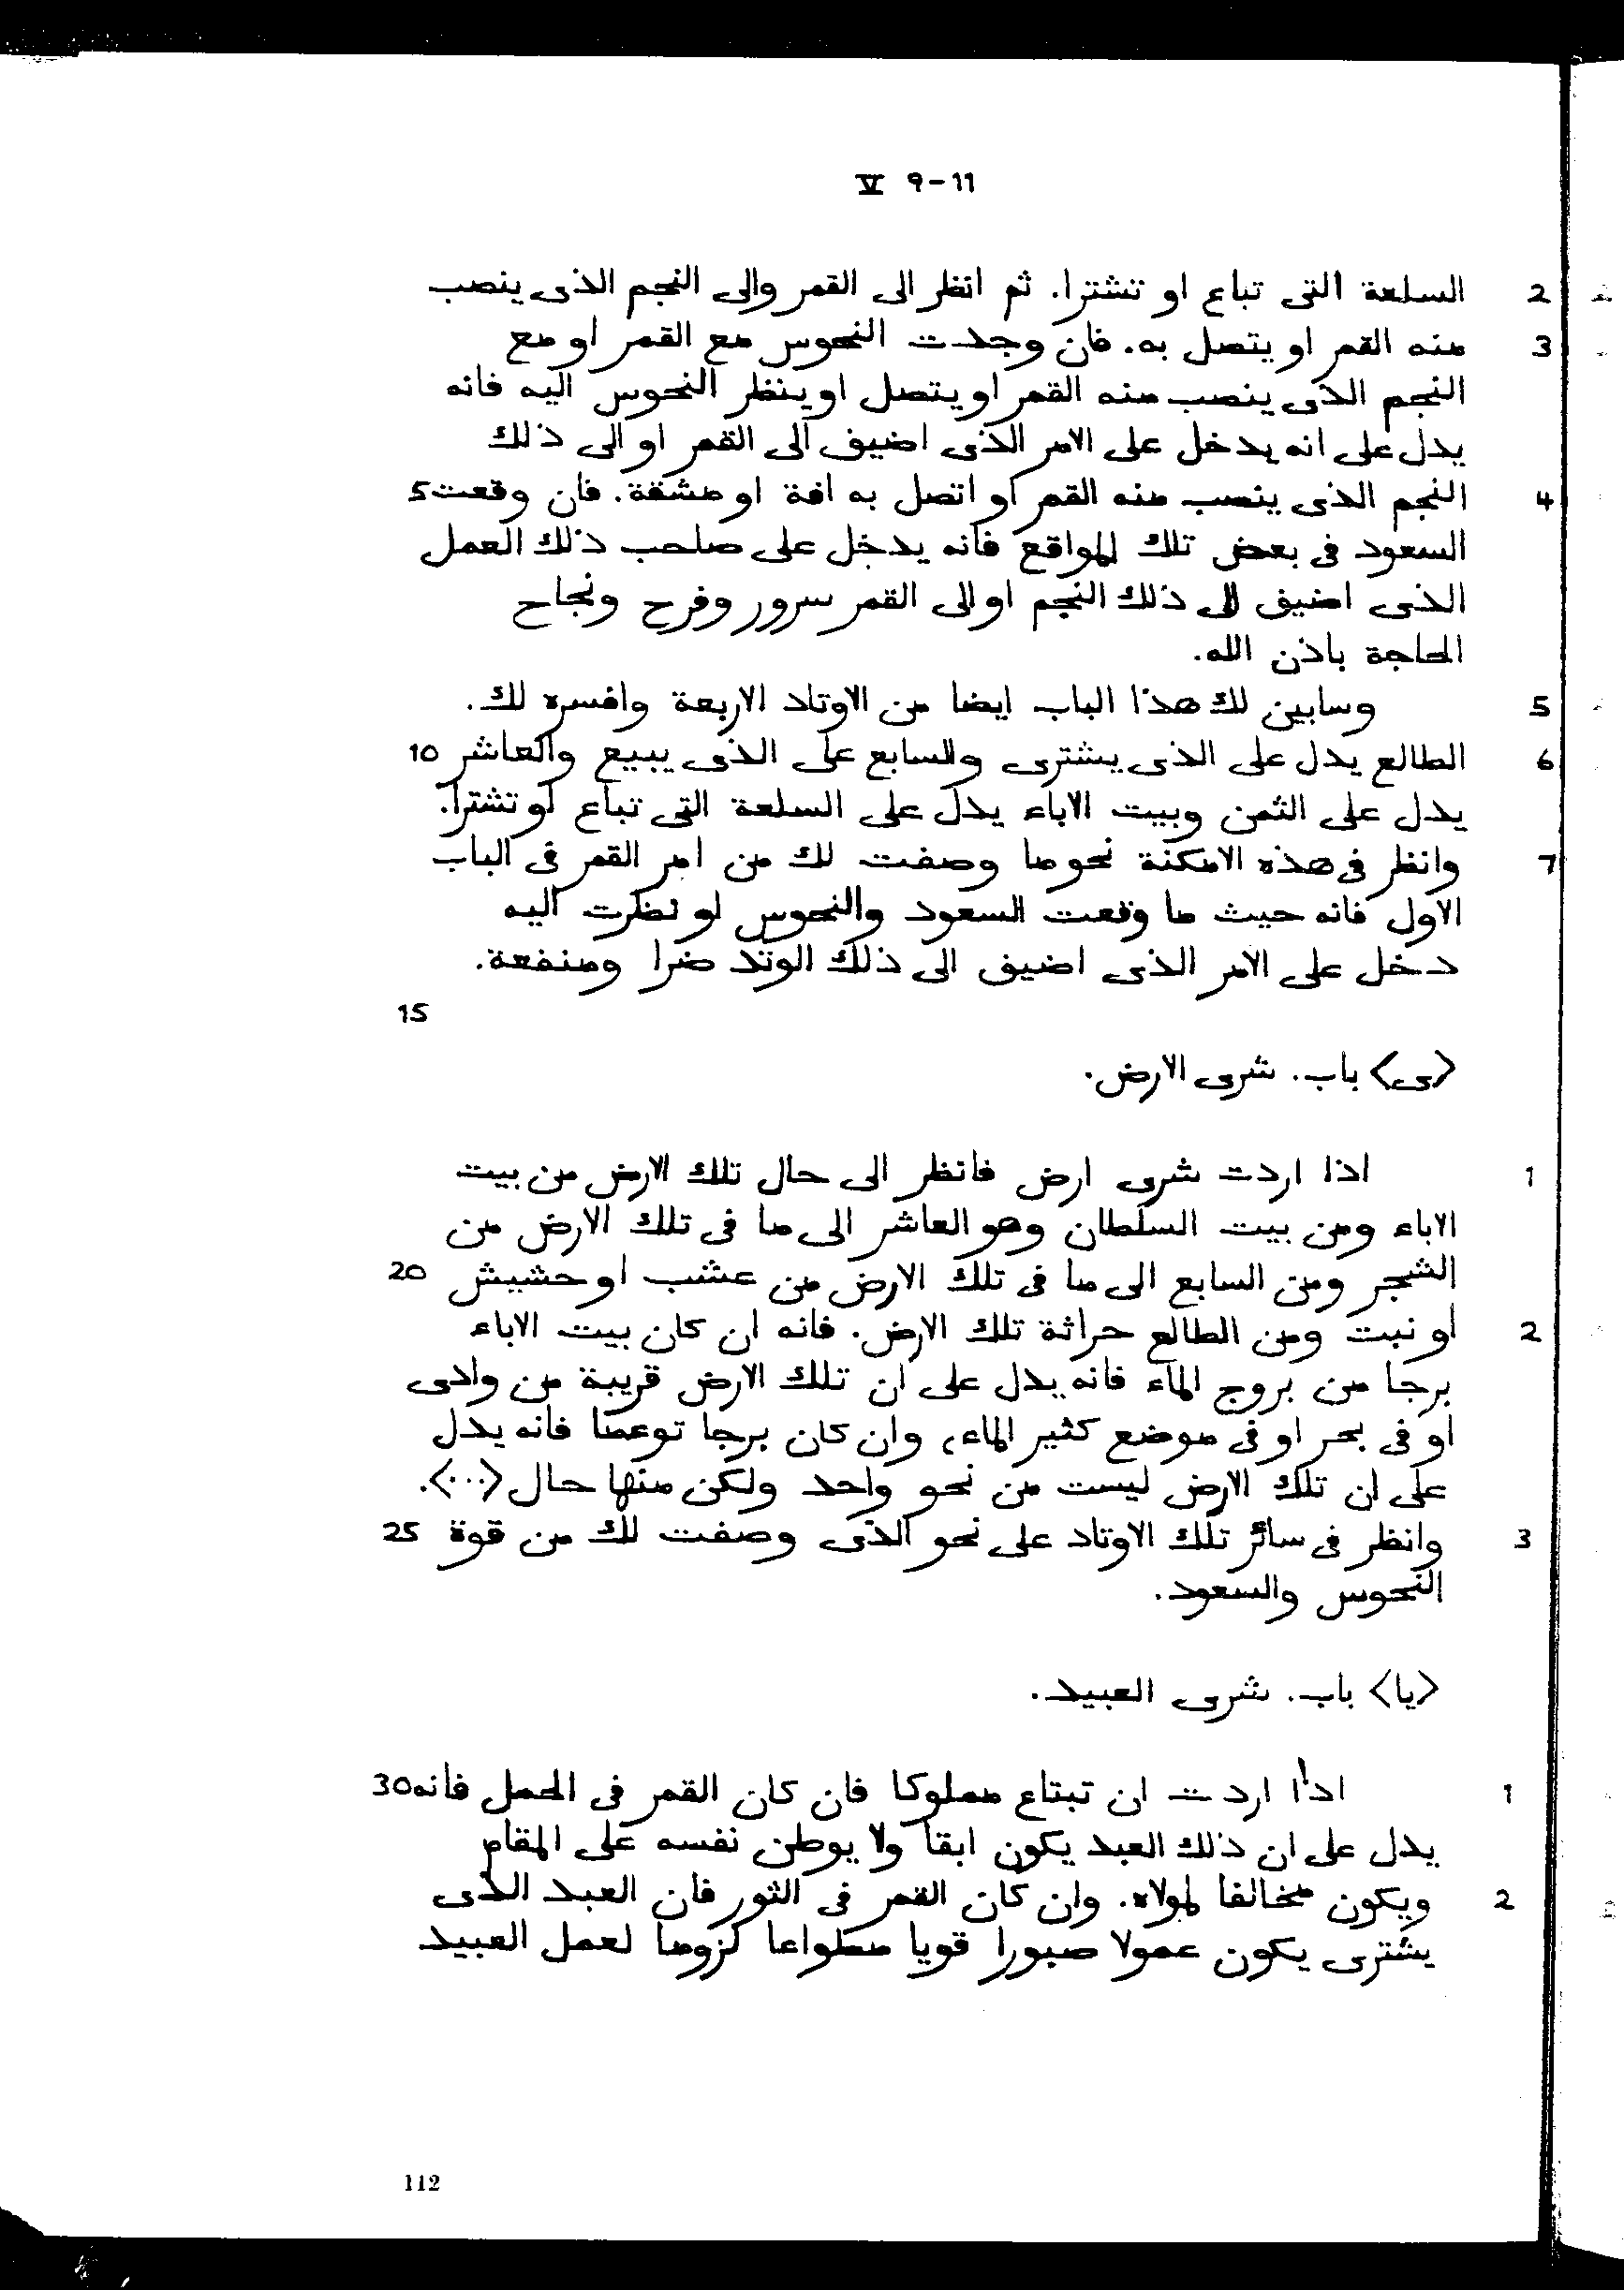 V 9-11
2 السلعة التى تباع او تشترا. ثم انظر الى القمر والى النجم الذى ينصب
3 منه القمر او يتصل به. فان وجدت النحوس مع القمر او مع
النجم الذى ينصب منه القمر او يتصل او ينظر النحوس اليه فانه
يدل على انه يدخل على الامر الذى اضيف الى القمر او الى ذلك
4 النجم الذى ينصب منه القمر او اتصل به افة او مشقة. فان وقعت 5
السعود فى بعض تلك المواقع فانه يدخل على صاحب ذلك العمل
الذى اضيف الى ذلك النجم او الى القمر سرور وفرح ونجاح
الحاجة باذن الله.
5 وسابين لك هذا الباب ايضا من الاوتاد الاربعة وافسره لك.
6 الطالع يدل على الذى يشترى والسابع على الذى يبيع والعاشر 10
يدل على الثمن وبيت الاباء يدل على السلعة التى تباع او تشترا.
7 وانظر فى هذه الامكنة نحو ما وصفت لك من امر القمر فى الباب
الاول فانه حيث ما وقعت السعود والنحوس او نظرت اليه
دخل على الامر الذى اضيف الى ذلك الوتد ضرا ومنفعة.
15
<ى> باب. شرى الارض.
1 اذا اردت شرى ارض فانظر الى حال تلك الارض من بيت
الاباء ومن بيت السلطان وهو العاشر الى ما فى تلك الارض من
الشجر ومن السابع الى ما فى تلك الارض من عشب او حشيش 20
2 او نبت ومن الطالع حراثة تلك الارض. فانه ان كان بيت الاباء
برجا من بروج الماء فانه يدل على ان تلك الارض قريبة من وادى
او فى بحر او فى موضع كثير الماء، وان كان برجا توعما فانه يدل
على ان تلك الارض ليست من نحو واحد ولكن منها حال <...>.
3 وانظر فى سائر تلك الاوتاد على نحو الذى وصفت لك من قوة 25
النحوس والسعود.
<يا> باب. شرى العبيد.
1 اذا اردت ان تبتاع مملوكا فان كان القمر فى الحمل فانه 30
يدل على ان ذلك العبد يكون ابقا ولا يوطن نفسه على المقام
2 ويكون مخالفا لمولاه. وان كان القمر فى الثور فان العبد الذى
يشترى يكون عمولا صبورا قويا مطواعا لزوما لعمل العبيد
112